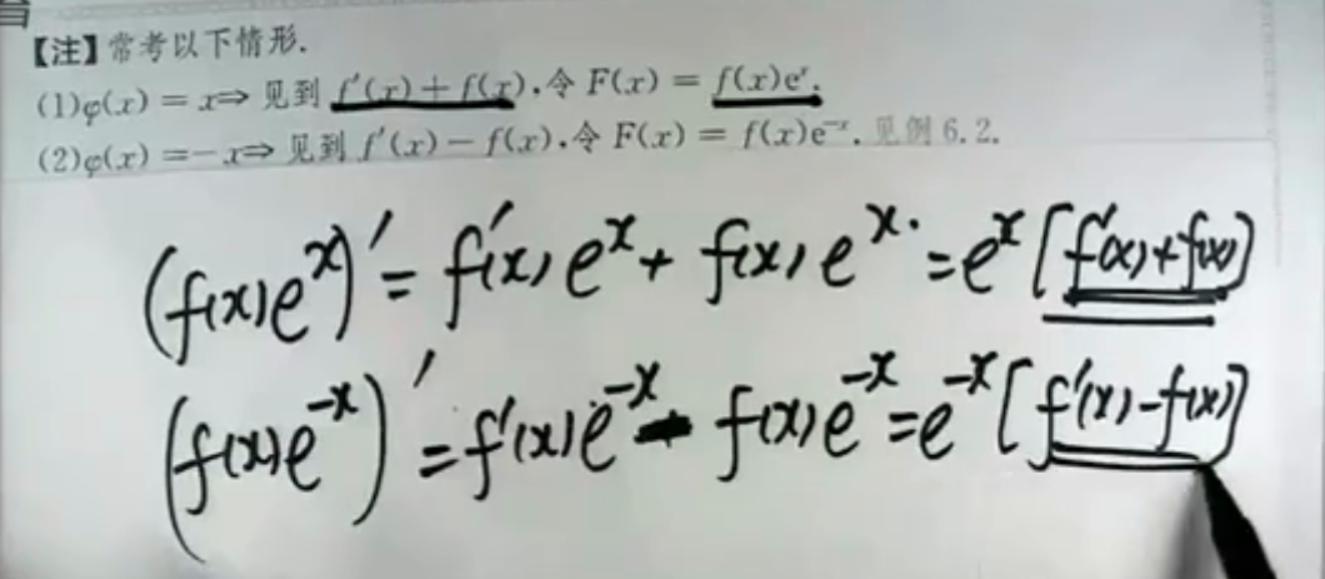 【注】常考以下情形.
(1)φ(x) = x⇒ 见到 f′(x) + f(x),令 F(x) = f(x)eˣ.
(2)φ(x) =−x⇒ 见到 f′(x) − f(x),令 F(x) = f(x)e⁻ˣ. 见例 6.2.
(f(x)eˣ)′ = f′(x)eˣ + f(x)eˣ. = eˣ[f′(x)+f(x)]
(f(x)e⁻ˣ)′ = f′(x)e⁻ˣ - f(x)e⁻ˣ = e⁻ˣ[f′(x)-f(x)]